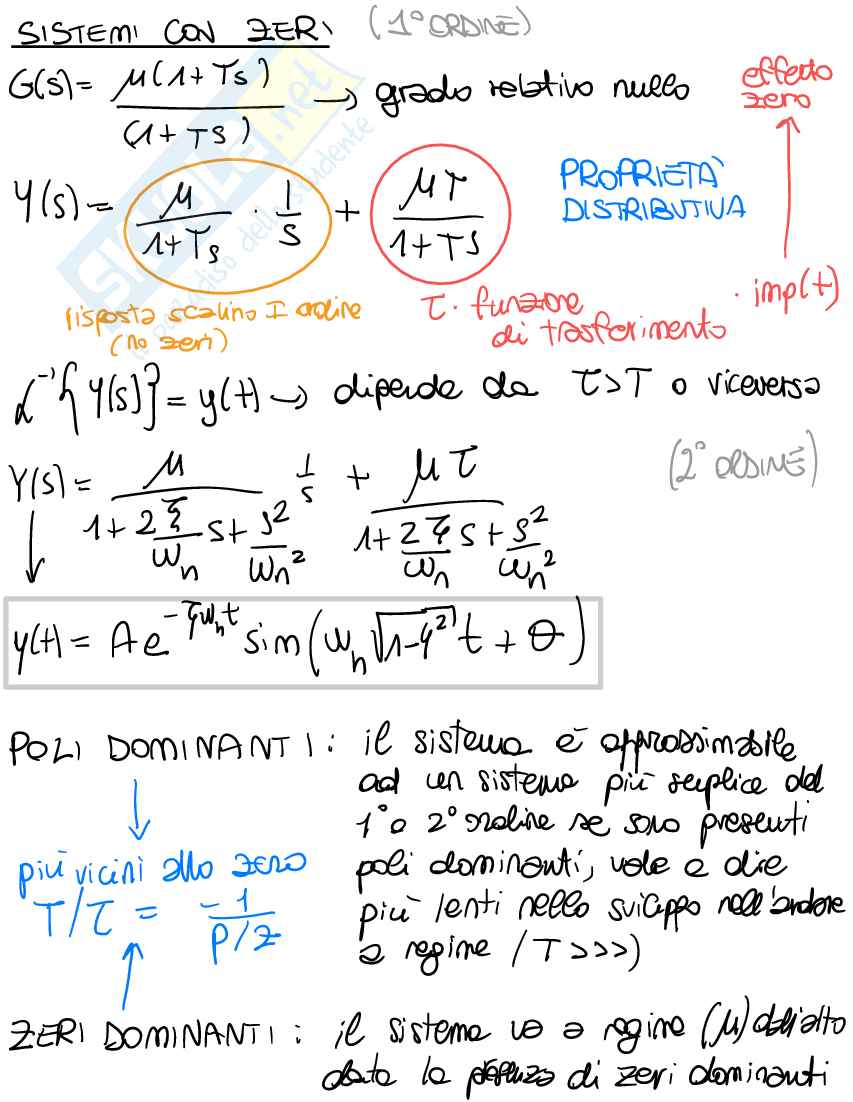 SISTEMI CON ZERI (1° ORDINE)
G(s) = μ(1+τs) / (1+Ts) → grado relativo nullo
effetto zero
Y(s) = μ/(1+Ts) · 1/s + μτ/(1+Ts)
PROPRIETÀ DISTRIBUTIVA
risposta scalino I ordine
(no zeri)
τ · funzione di trasferimento · imp(t)
L⁻¹{Y(s)} = y(t) → dipende da τ>T o viceversa
(2° ORDINE)
Y(s) = μ/(1+2ξ/ωn s+s²/ωn²) 1/s + μτ/(1+2ξ/ωn s+s²/ωn²)
y(t) = Ae^(-ξωnt) sin(ωn√(1-ξ²) t + θ)
POLI DOMINANTI: il sistema è approssimabile
ad un sistema più semplice del
1° o 2° ordine se sono presenti
poli dominanti, vale a dire
più lenti nello sviluppo nell'andare
a regime (T>>>)
più vicini allo zero
T/τ = -1/(P/z)
ZERI DOMINANTI: il sistema va a regime (μ) dall'alto
data la presenza di zeri dominanti